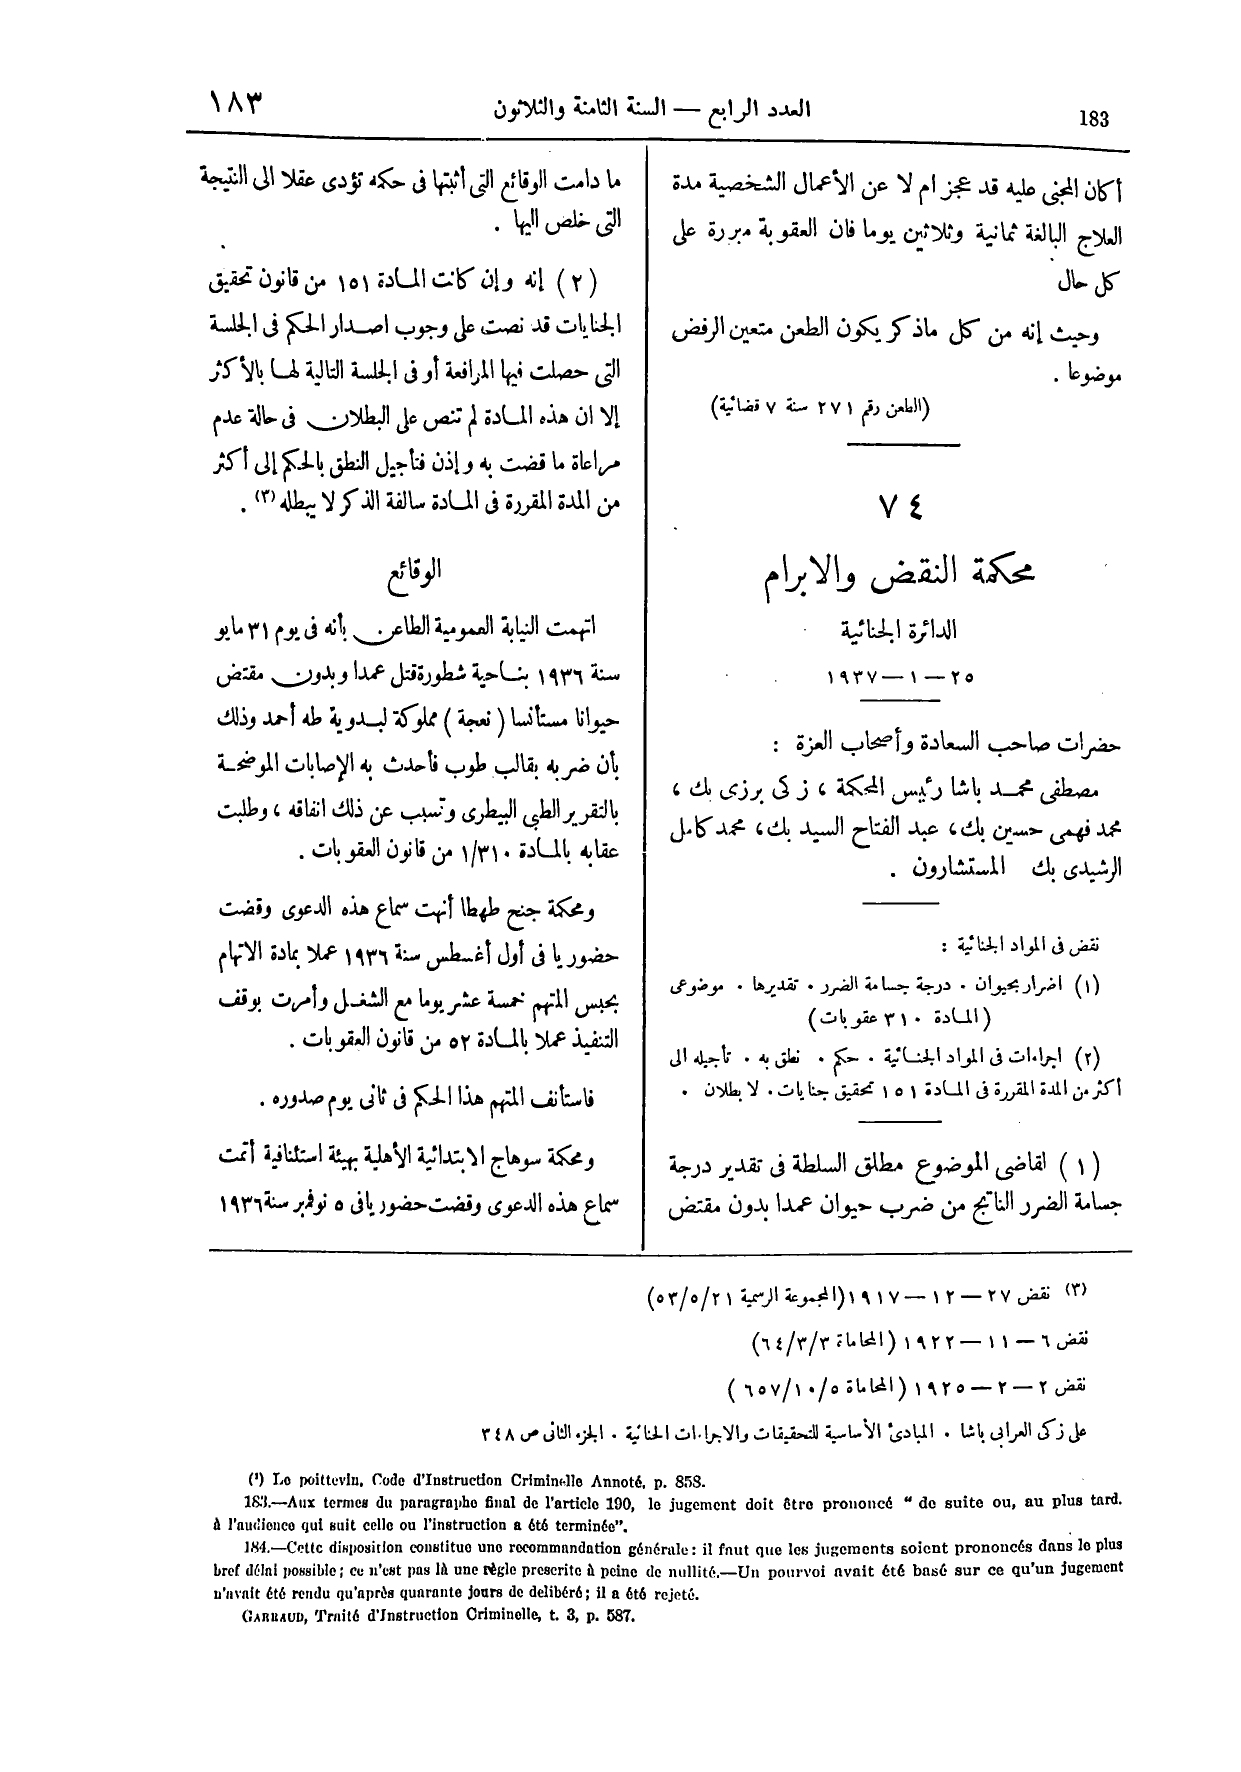 183
العدد الرابع — السنة الثامنة والثلاثون
١٨٣
أكان المجنى عليه قد عجز ام لا عن الأعمال الشخصية مدة
العلاج البالغة ثمانية وثلاثين يوما فان العقوبة مبررة على
كل حال
وحيث إنه من كل ماذكر يكون الطعن متعين الرفض
موضوعا .
(الطعن رقم ٢٧١ سنة ٧ قضائية)
٧٤
محكمة النقض والابرام
الدائرة الجنائية
٢٥ — ١ — ١٩٣٧
حضرات صاحب السعادة وأصحاب العزة :
مصطفى محمد باشا رئيس المحكمة ، زكى برزى بك ،
محمد فهمى حسين بك، عبد الفتاح السيد بك، محمد كامل
الرشيدى بك المستشارون .
نقض فى المواد الجنائية :
(١) اضرار بحيوان . درجة جسامة الضرر . تقديرها . موضوعى
(المادة ٣١٠ عقوبات)
(٢) اجراءات فى المواد الجنائية . حكم . نطق به . تأجيله الى
أكثر من المدة المقررة فى المادة ١٥١ تحقيق جنايات . لا بطلان .
(١) لقاضى الموضوع مطلق السلطة فى تقدير درجة
جسامة الضرر الناتج من ضرب حيوان عمدا بدون مقتض
ما دامت الوقائع التى أثبتها فى حكمه تؤدى عقلا الى النتيجة
التى خلص اليها .
(٢) إنه وإن كانت المادة ١٥١ من قانون تحقيق
الجنايات قد نصت على وجوب اصدار الحكم فى الجلسة
التى حصلت فيها المرافعة أو فى الجلسة التالية لها بالأكثر
إلا ان هذه المادة لم تنص على البطلان فى حالة عدم
مراعاة ما قضت به وإذن فتأجيل النطق بالحكم إلى أكثر
من المدة المقررة فى المادة سالفة الذكر لا يبطله (٣) .
الوقائع
اتهمت النيابة العمومية الطاعن بأنه فى يوم ٣١ مايو
سنة ١٩٣٦ بناحية شطورة قتل عمدا وبدون مقتض
حيوانا مستأنسا (نعجة) مملوكة لبدوية طه أحمد وذلك
بأن ضربه بقالب طوب فأحدث به الإصابات الموضحة
بالتقرير الطبى البيطرى وتسبب عن ذلك انفاقه ، وطلبت
عقابه بالمادة ١/٣١٠ من قانون العقوبات .
ومحكمة جنح طهطا أنهت سماع هذه الدعوى وقضت
حضوريا فى أول أغسطس سنة ١٩٣٦ عملا بمادة الاتهام
بحبس المتهم خمسة عشر يوما مع الشغل وأمرت بوقف
التنفيذ عملا بالمادة ٥٢ من قانون العقوبات .
فاستأنف المتهم هذا الحكم فى ثانى يوم صدوره .
ومحكمة سوهاج الابتدائية الأهلية بهيئة استئنافية أتمت
سماع هذه الدعوى وقضت حضوريا فى ٥ نوفمبر سنة ١٩٣٦
(٣) نقض ٢٧ — ١٢ — ١٩١٧ (المجموعة الرسمية ٥٣/٥/٢١)
نقض ٦ — ١١ — ١٩٢٢ (المحاماة ٦٤/٣/٣)
نقض ٢ — ٢ — ١٩٢٥ (المحاماة ٦٥٧/١٠/٥)
على زكى العرابى باشا . المبادئ الأساسية للتحقيقات والاجراءات الجنائية . الجزء الثانى ص ٣٤٨
(¹) Le poittevin, Code d'Instruction Criminelle Annoté, p. 858.
183.—Aux termes du paragraphe final de l'article 190, le jugement doit être prononcé " de suite ou, au plus tard.
à l'audience qui suit celle ou l'instruction a été terminée".
184.—Cette disposition constitue une recommandation générale: il faut que les jugements soient prononcés dans le plus
bref délai possible; ce n'est pas là une règle prescrite à peine de nullité.—Un pourvoi avait été basé sur ce qu'un jugement
n'avait été rendu qu'après quarante jours de delibéré; il a été rejeté.
GARRAUD, Traité d'Instruction Criminelle, t. 3, p. 587.